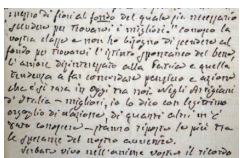 meno di fiori al fondo del quale sia necessario
scendere per trovarvi i migliori. Conosco la
vostra classe e non ho bisogno di scendere al
fondo per trovarvi l'istinto spontaneo del bene,
l'amore disinteressato alla Patria e quella
tendenza a far concordare pensiero e azione
che è sì rara in oggi tra noi. Negli Artigiani
d'Italia - migliori, io lo dico con legittimo
orgoglio di nazione, di quanti altri m'è
dato conoscere - stanno riposte le più tra
le speranze del nostro avvenire.
Serbate vivo nell'anime vostre il ricordo